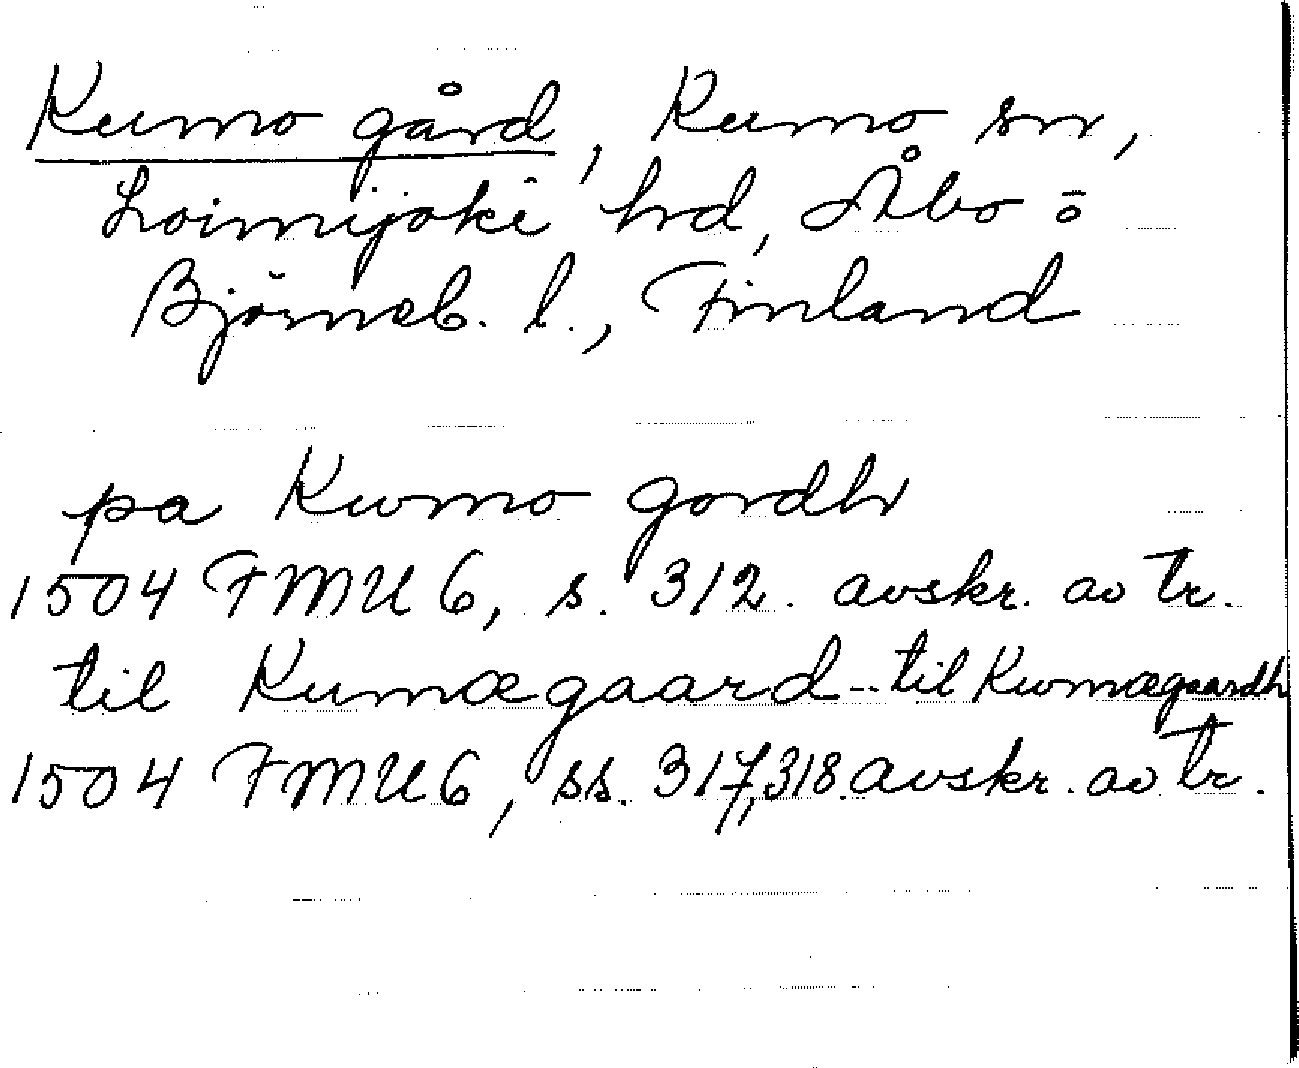 Kumo gård, Kumo sn,
Loimijoki hrd, Åbo o
Björneb. l., Finland
pa Kwmo gordh
1504 FMU 6, s. 312. avskr. av tr.
til Kumægaard -- til Kwmægaardh
1504 FMU 6, ss. 317, 318. avskr. av tr.